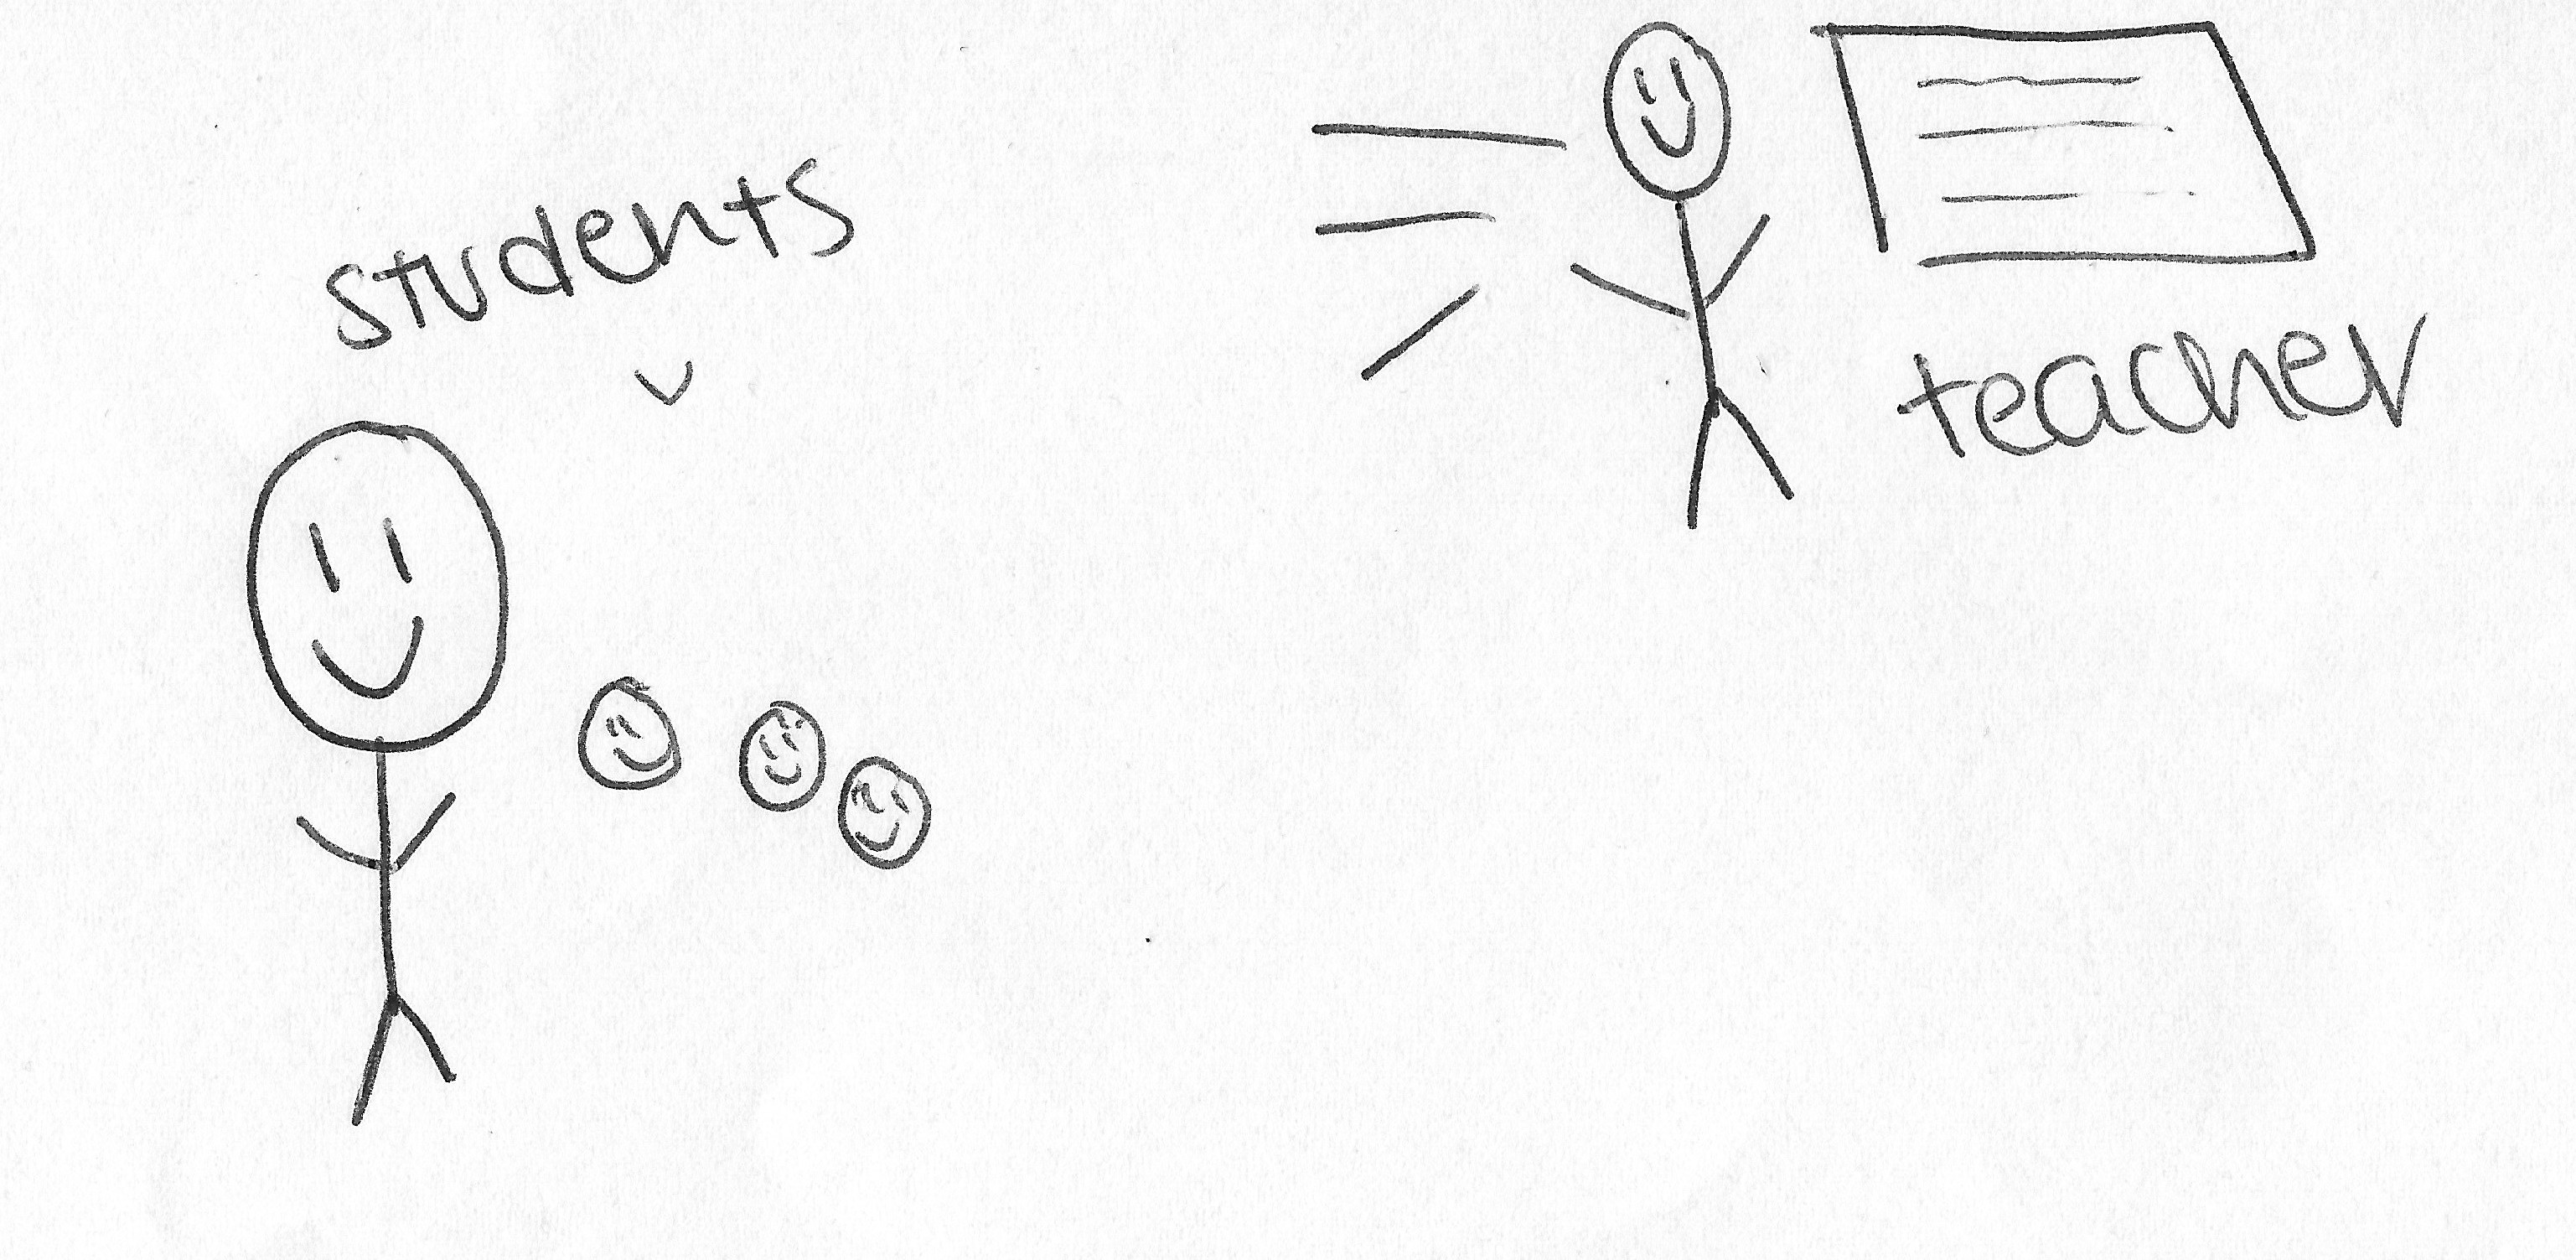 students
teacher